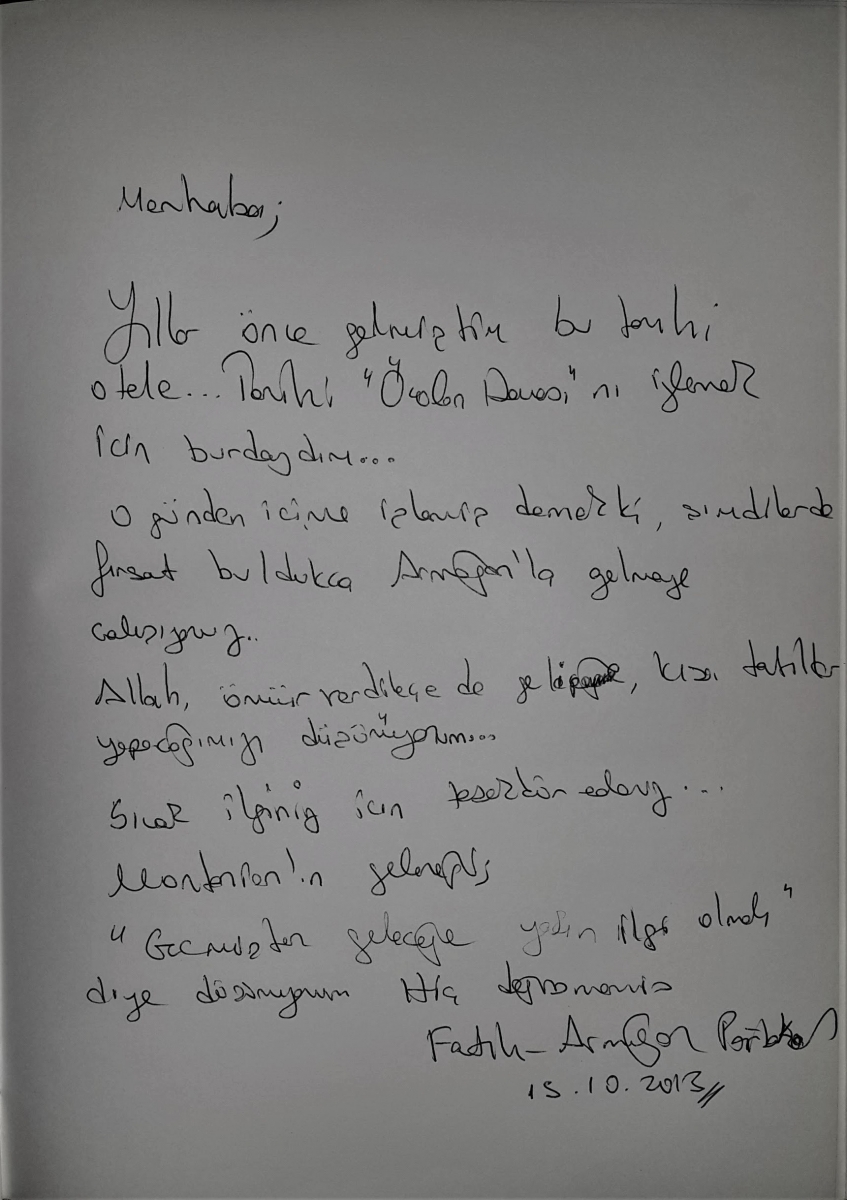 Merhaba;
Yıllar önce gelmiştim bu tarihi
otele... Tarihi "Öcalan Davası"nı işlemek
için burdaydım...
O günden içime işlemiş demekki, şimdilerde
fırsat buldukca Armağan'la gelmeye
calışıyoruz..
Allah, ömür verdikçe de kısa tatiller
yapacağımızı düşünüyorum...
Sıcak ilginiz için teşekkür ederiz...
Montanian'ın geleneği;
"Gecmişten geleceğe yakın ilgi olmalı"
diye düşünüyorum Hiç
Fatih - Armağan
15.10.2013